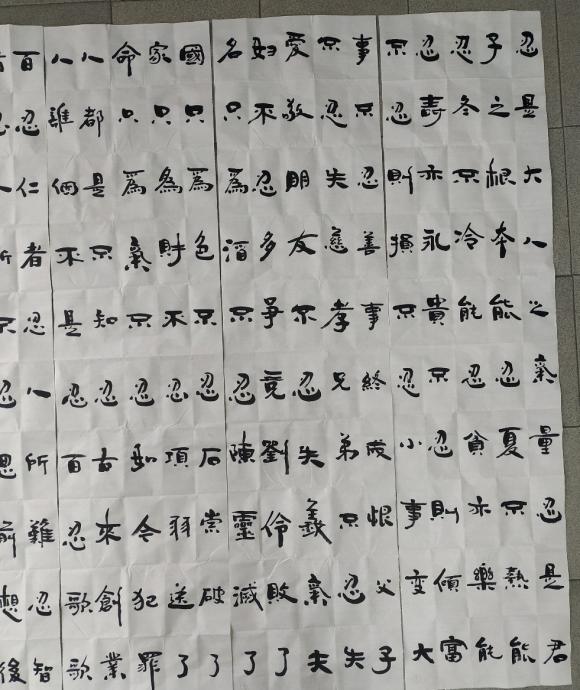 忍是大人之氣量忍是君
子之根本能忍夏不熱能
忍冬不冷能忍貧亦樂能
忍壽亦永貴不忍則傾富
不忍則損不忍小事變大
事不忍善事終成恨父子
不忍失慈孝兄弟不忍失
愛敬朋友不忍失義氣夫
婦不忍多爭競劉伶敗了
名只為酒不忍陳靈滅了
國只為色不忍石崇破了
家只為財不忍項羽送了
命只為氣不忍如今犯罪
人都是不知忍古來創業
人誰個不是忍百忍歌歌
百忍仁者忍人所難忍智
者忍人所不忍思前想後